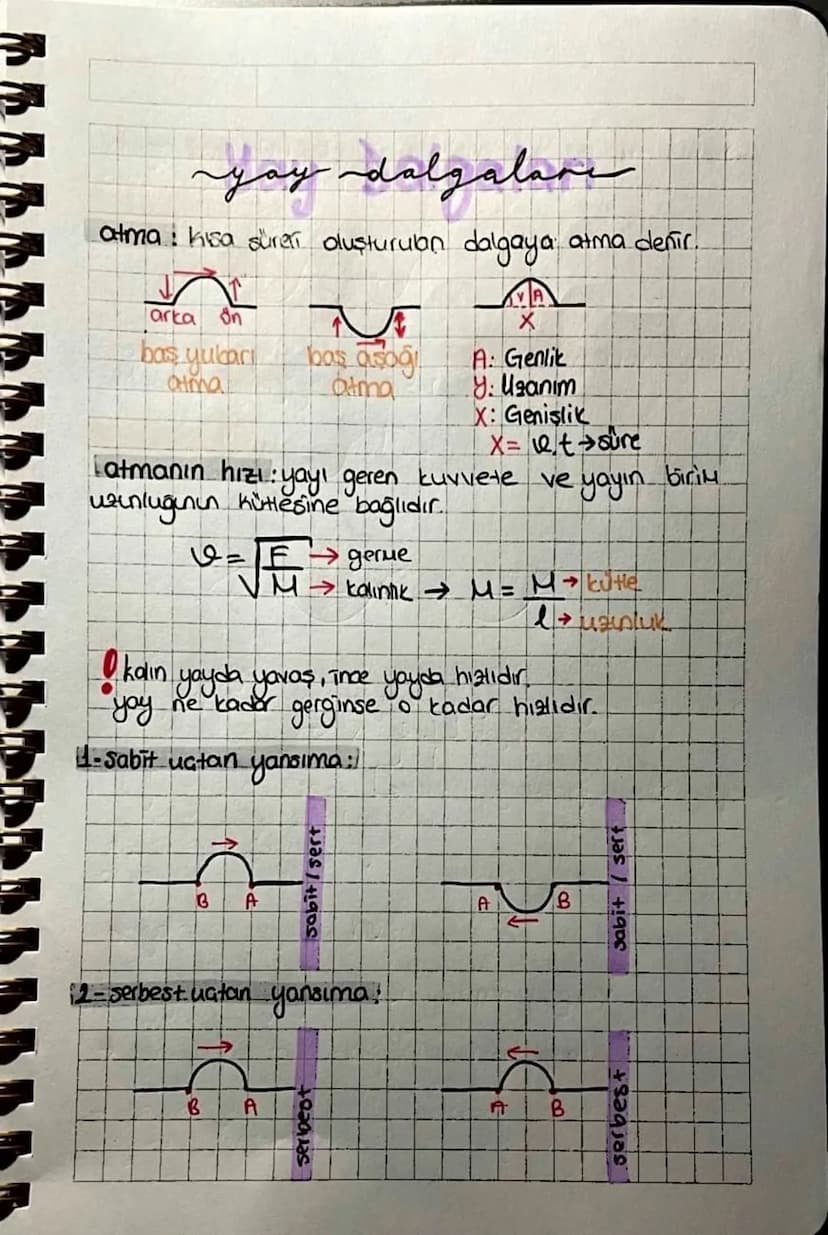 yay dalgaları
atma: kısa süreli oluşturulan dalgaya atma denir.
arka ön
baş yukarı
atma
baş aşağı
atma
y A
X
A: Genlik
y: Uzanım
X: Genişlik
X= v.t → süre
atmanın hızı: yayı geren kuvvete ve yayın birim
uzunluğunun kütlesine bağlıdır.
v = √F/M → germe
→ kalınlık → M = M → kütle
l → uzunluk
! kalın yayda yavaş, ince yayda hızlıdır.
yay ne kadar gerginse o kadar hızlıdır.
1-sabit uçtan yansıma:
B A sabit / sert
A B sabit / sert
2-serbest uçtan yansıma:
B A serbest
A B serbest